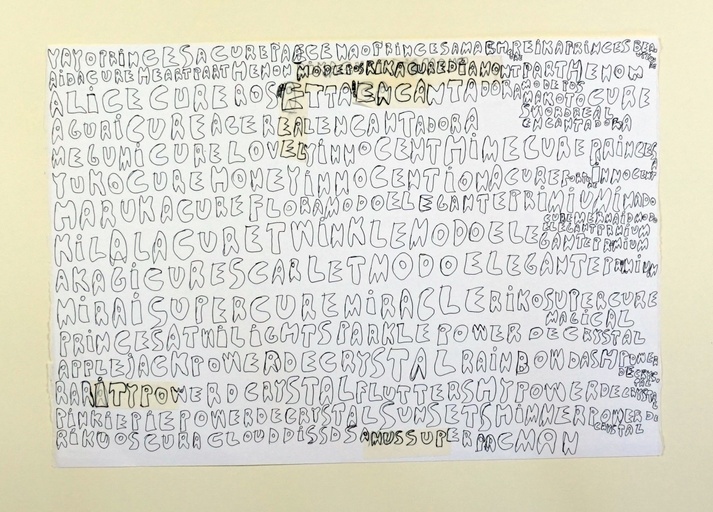 YAYOPRINCESACUREPA CENAOPRINCESAMA REIKAPRINCES
AIDACUREHEARTPARTHENON MODEPOSRIKACUREDIAMONTPARTHENON
ALICECUREROSETTAENCANTADORAMODEPOS
MAKOTOCURE
SWORDREAL
ENCANTADORA
AGURICUREACEREALENCANTADORA
MEGUMICURELOVELYINNOCENTHIMECUREPRINCESA
YUKOCUREHONEYINNOCENTIONACURE INNOCENT
HARUKACUREFLORAMODOELEGANTEPRIMIUMINADO
CUREMERMAIDMODO
ELEGANTPRMIUM
KILALACURETWINKLEMODOELEGANTEPRMIUM
AKAGICURESCARLETMODOELEGANTEPREMIUM
MIRAISUPERCUREMIRACLERIKOSUPERCURE
MAGICAL
PRINCESATWILIGHTSPARKLEPOWERDECRYSTAL
APPLEJACKPOWERDECRYSTALRAINBOWDASHPOWER
DECRYSTAL
RARITYPOWERDCRYSTALFLUTTERSHYPOWERDECRYSTAL
PINKIEPIEPOWERDECRYSTALSUNSETSHIMMERPOWERDE
CRYSTAL
RIKUOSCURACLOUDDISSDSAMUSSUPERPACMAN